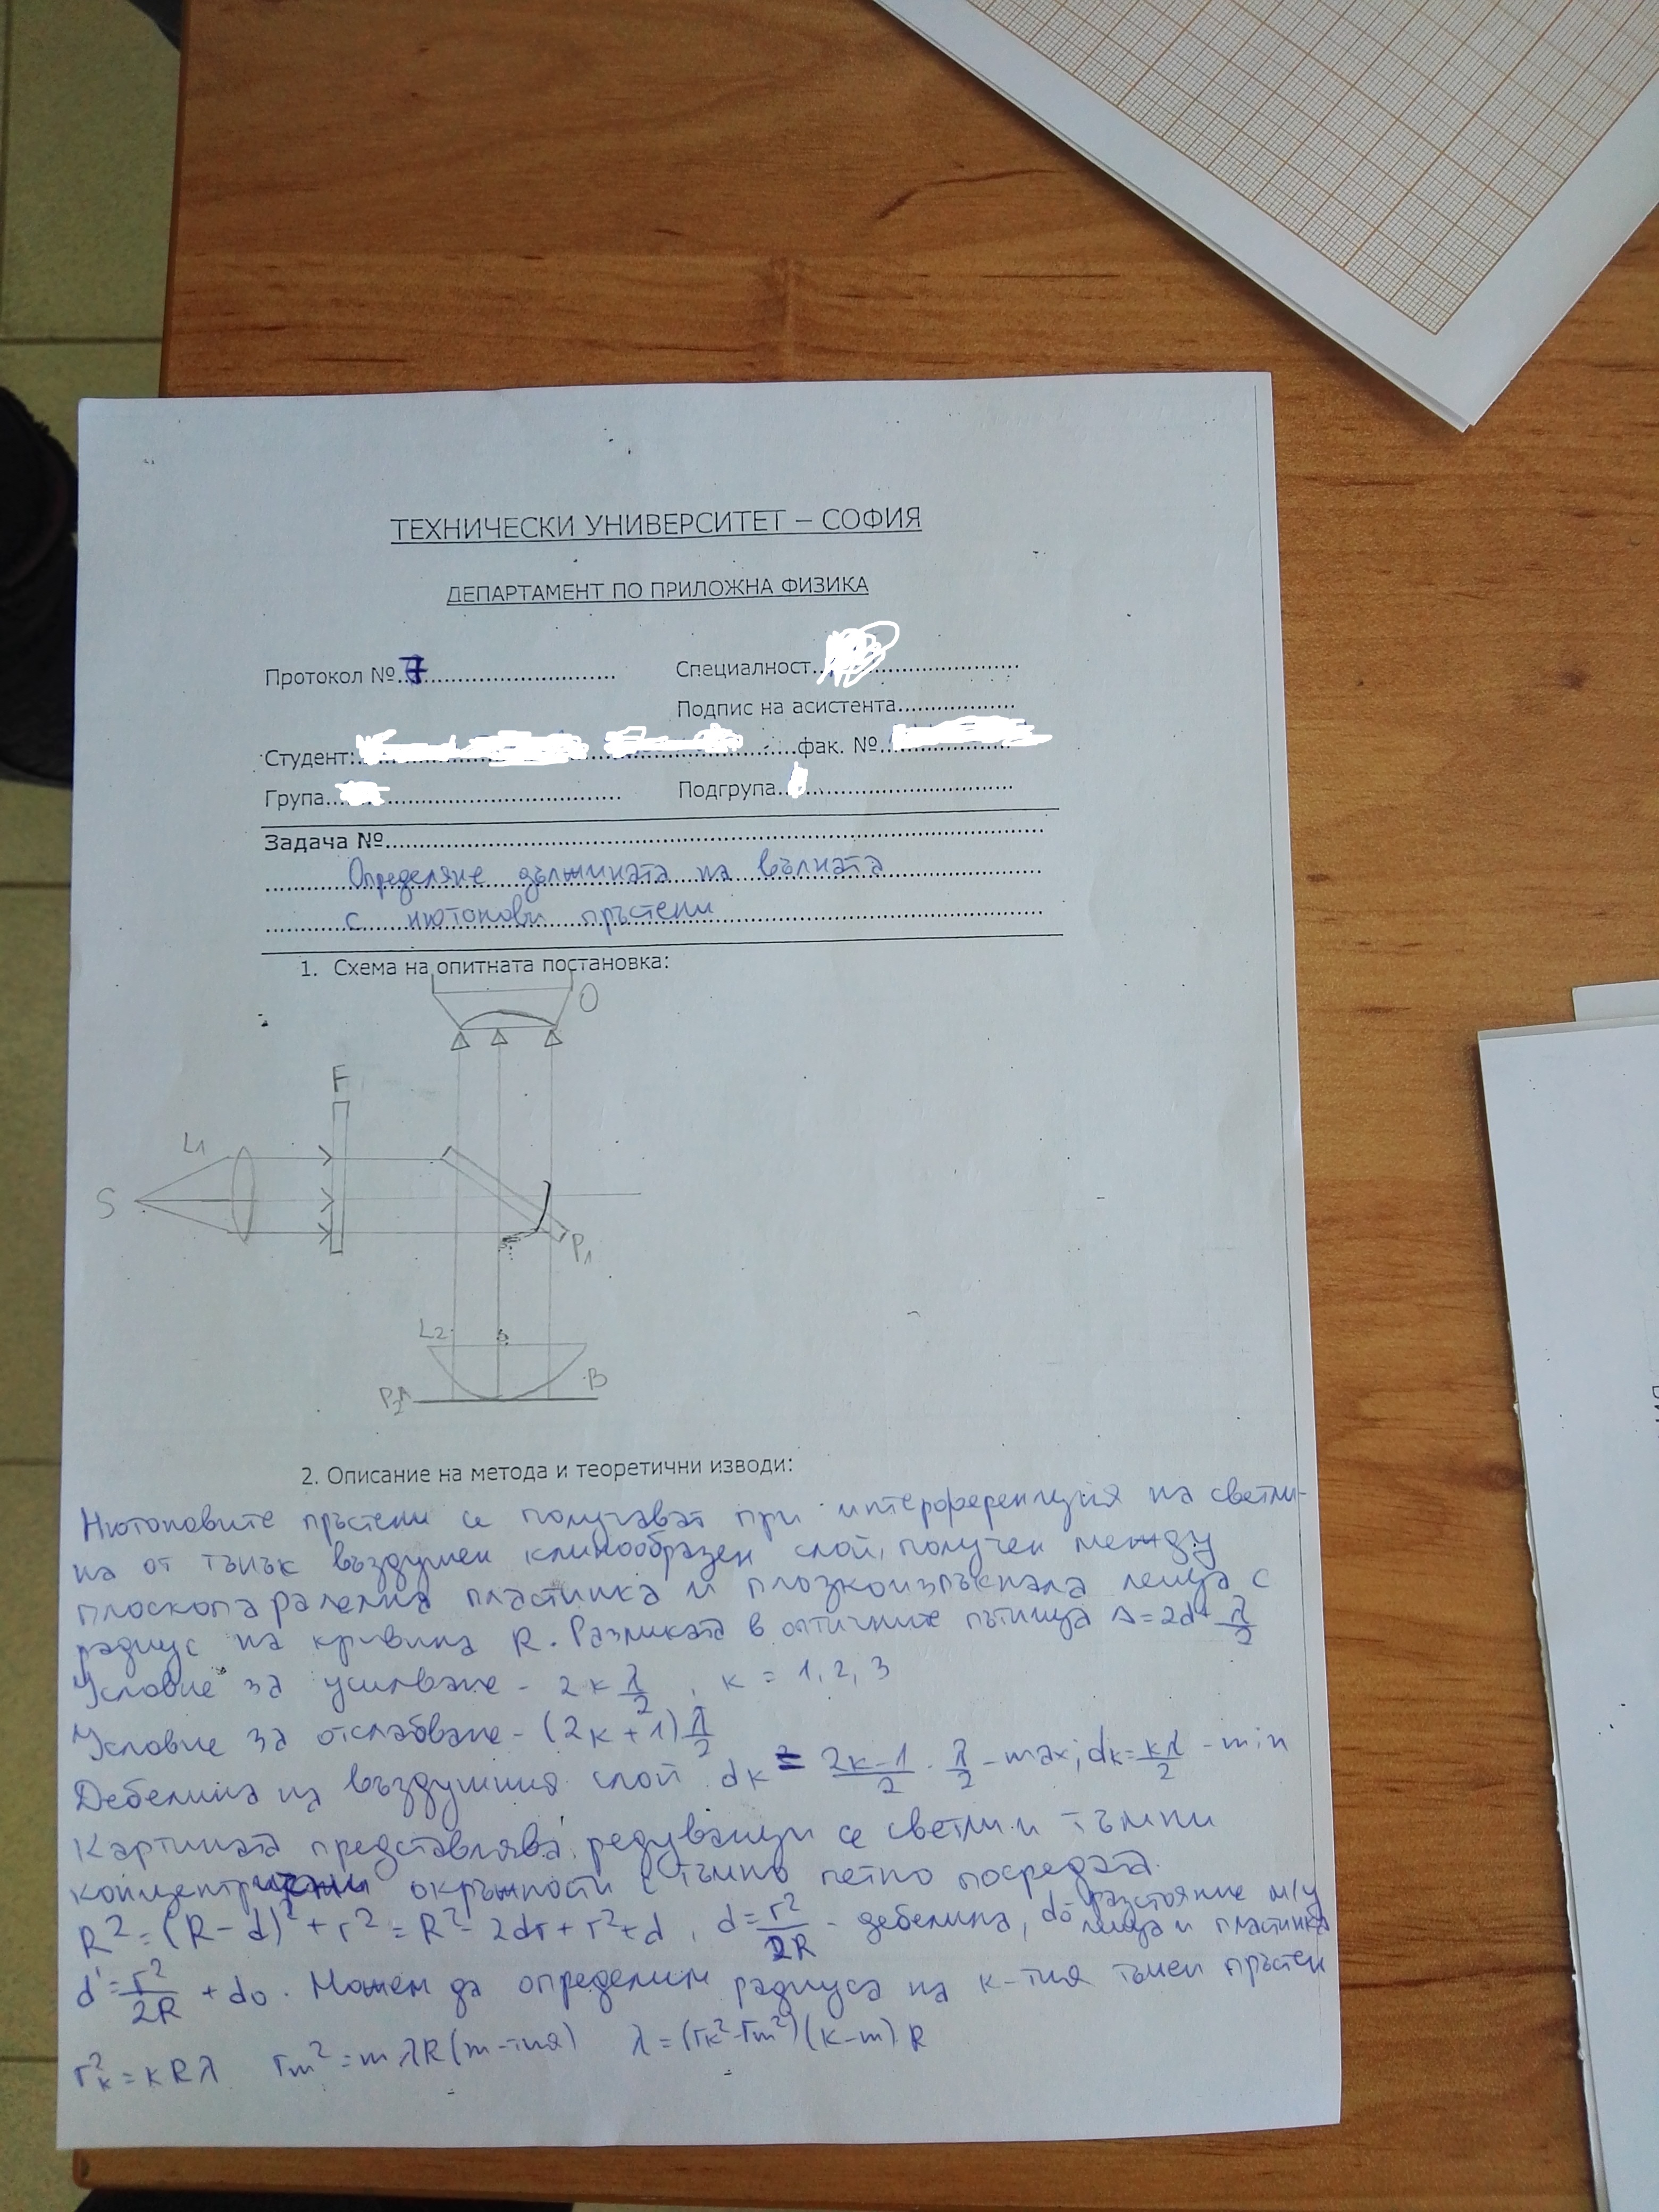 ТЕХНИЧЕСКИ УНИВЕРСИТЕТ – СОФИЯ
ДЕПАРТАМЕНТ ПО ПРИЛОЖНА ФИЗИКА
Протокол № 7 Специалност
Подпис на асистента
Студент: фак. №
Група Подгрупа
Задача №
Определяне дължината на вълната
с нютонови пръстени
1. Схема на опитната постановка:
O
F
L1
S
P1
L2
P2 B
2. Описание на метода и теоретични изводи:
Нютоновите пръстени се получават при интерференция на светли-
на от тънък въздушен клинообразен слой, получен между
плоскопаралелна пластинка и плоскоизпъкнала леща с
радиус на кривина R. Разликата в оптичните пътища Δ=2d+λ/2
Условие за усилване - 2k λ/2 , k = 1, 2, 3
Условие за отслабване - (2k+1) λ/2
Дебелина на въздушния слой dk = (2k-1)/2 · λ/2 - max; dk = kλ/2 - min
Картината представлява редуващи се светли и тъмни
концентрични окръжности с тъмно петно посредата.
R² = (R-d)² + r² = R² - 2dr + r² + d , d = r²/2R - дебелина, d0 - разстояние м/у леща и пластинка
d' = r²/2R + d0 . Можем да определим радиуса на k-тия тъмен пръстен
rk² = kRλ rm² = mλR (m-тия) λ = (rk² - rm²)(k-m) R